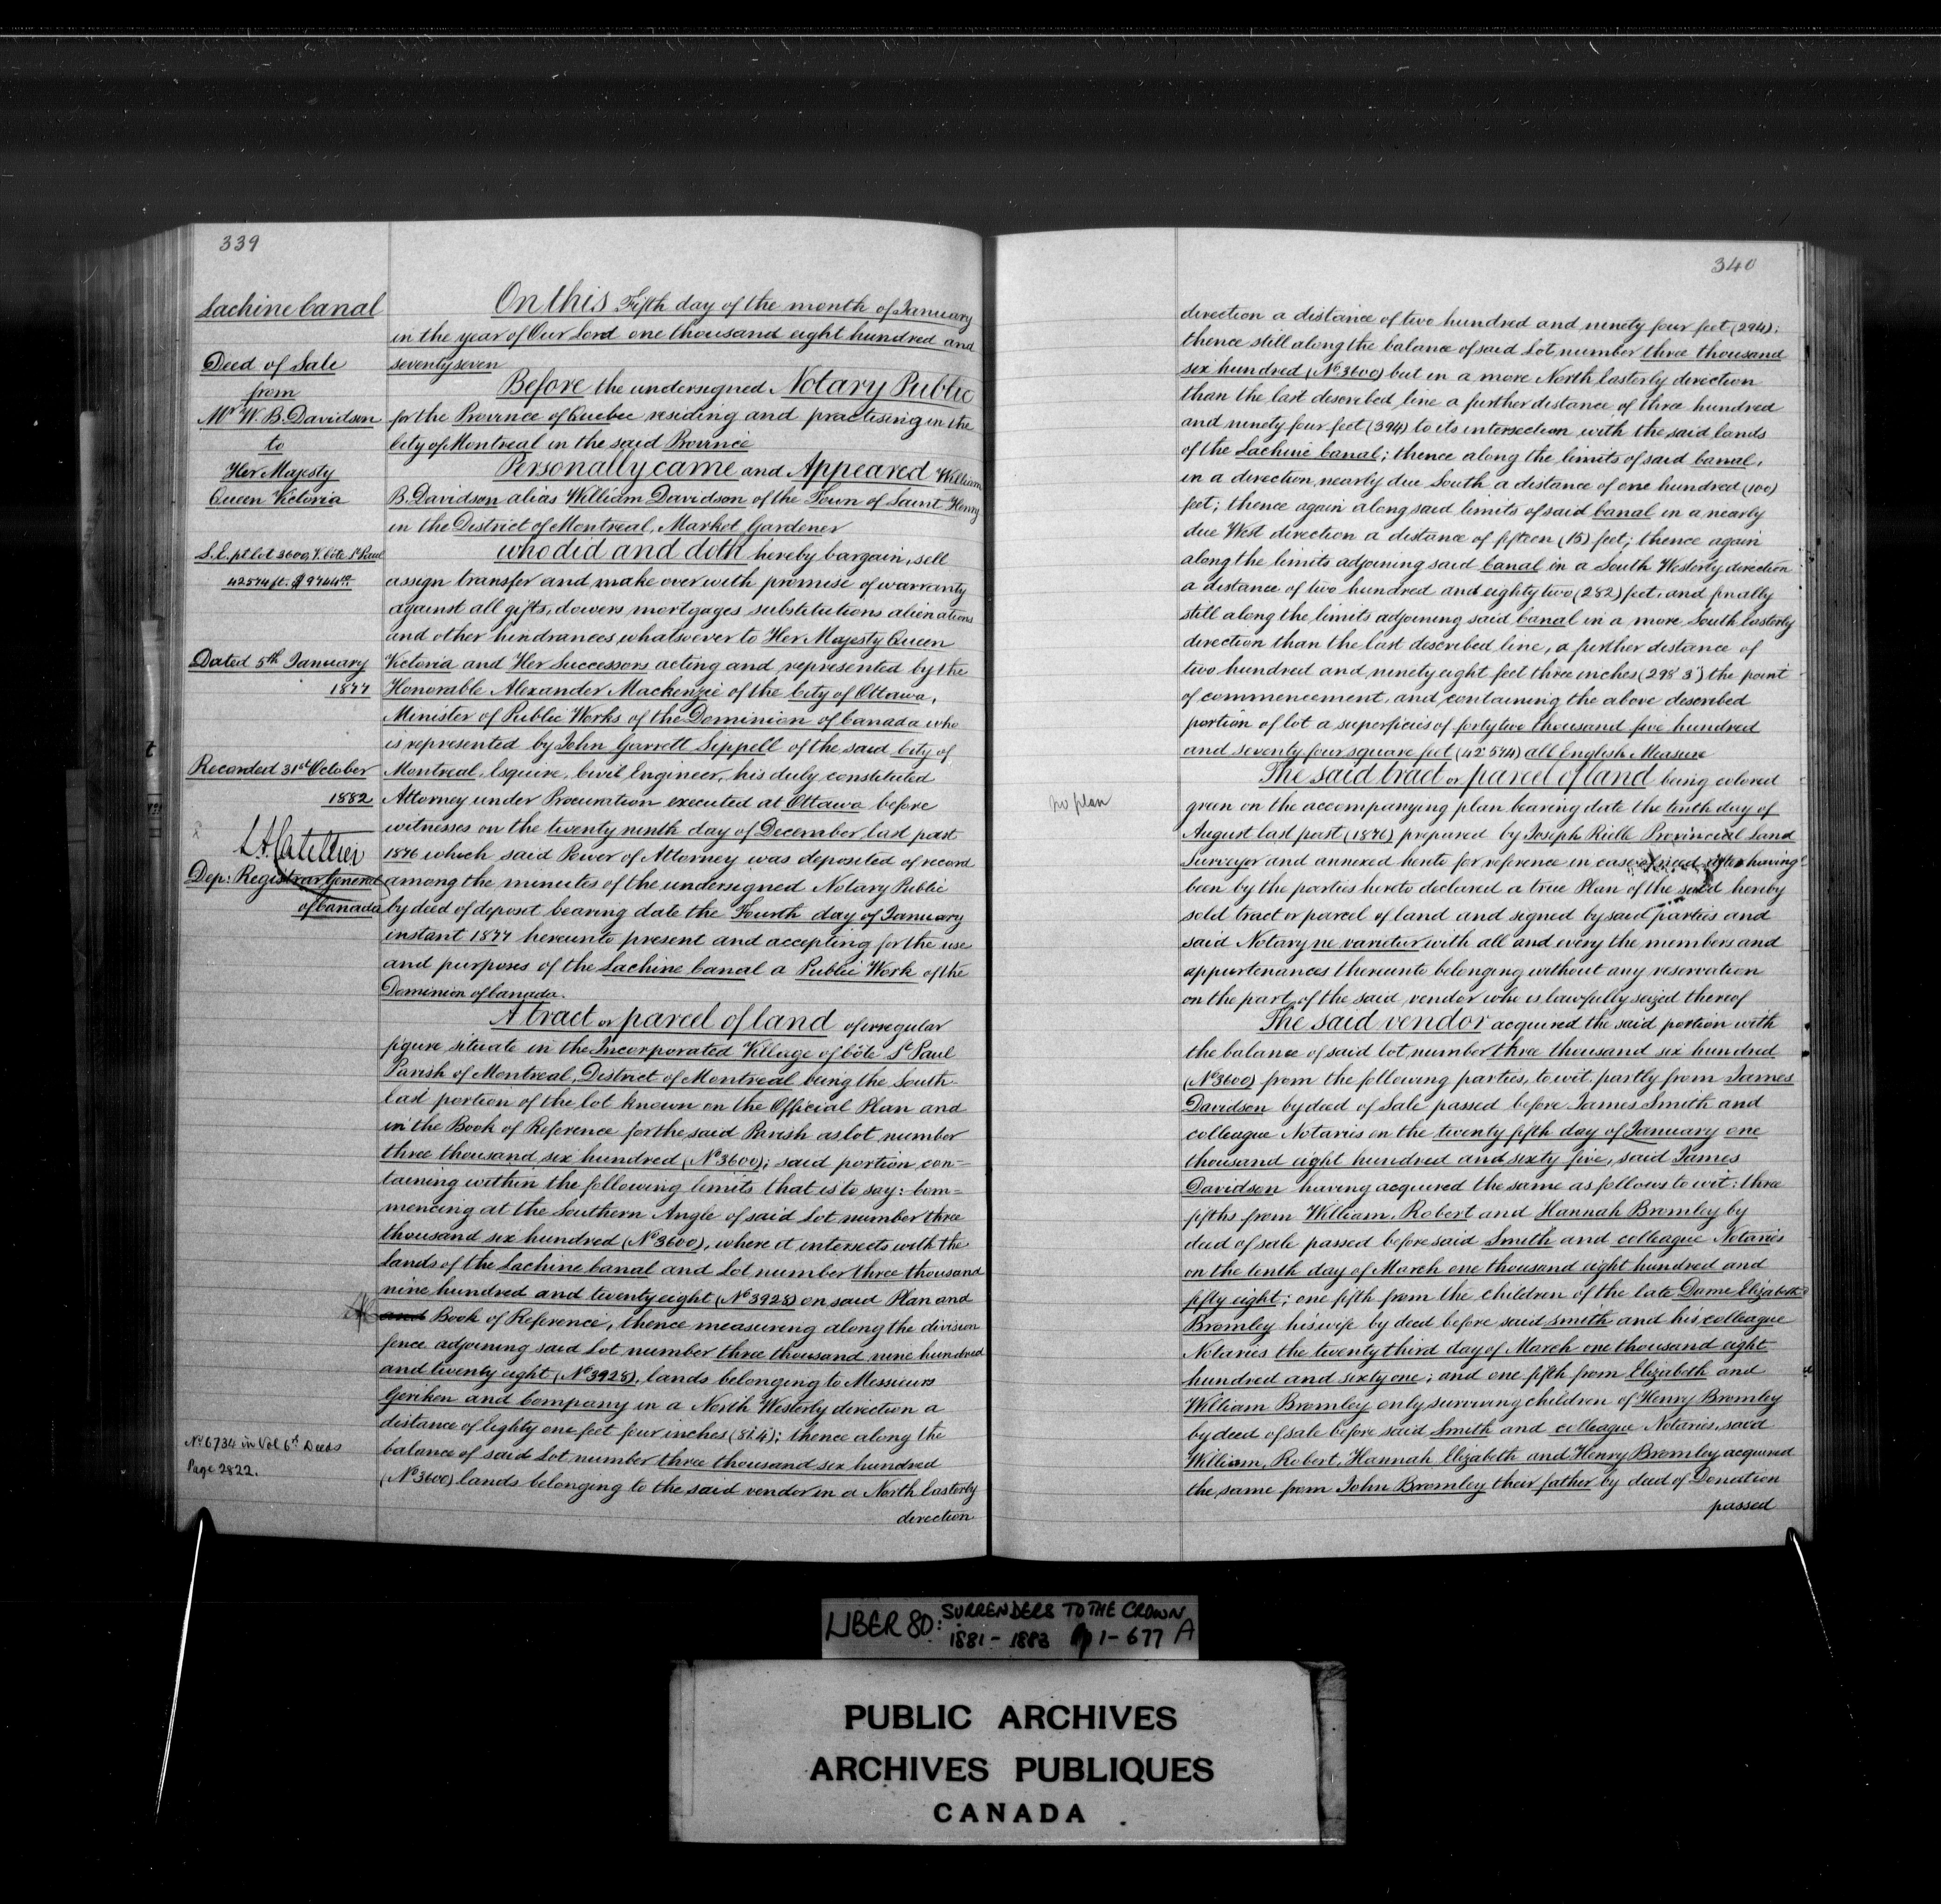 339
Lachine Canal
Deed of Sale
from
Mr W. B. Davidson
to
Her Majesty
Queen Victoria
S.E. pt lot 3600, V. Côte St Paul
42574 ft.
Dated 5th January
1877
Recorded 31st October
1882
Dep: Registrar General
of Canada
No 6734 in Vol 6th Deeds
Page 2822.
On this Fifth day of the month of January
in the year of Our Lord one thousand eight hundred and
seventy seven
Before the undersigned Notary Public
for the Province of Quebec residing and practising in the
City of Montreal in the said Province
Personally came and Appeared William
B. Davidson alias William Davidson of the Town of Saint Henry
in the District of Montreal, Market Gardener
who did and doth hereby bargain, sell
assign transfer and make over with promise of warranty
against all gifts, dowers mortgages substitutions alienations
and other hindrances whatsoever to Her Majesty Queen
Victoria and Her Successors acting and represented by the
Honorable Alexander Mackenzie of the City of Ottawa,
Minister of Public Works of the Dominion of Canada who
is represented by John Garrett Sippell of the said City of
Montreal, Esquire, Civil Engineer, his duly constituted
Attorney under Procuration executed at Ottawa before
witnesses on the twenty ninth day of December last past
1876 which said Power of Attorney was deposited of record
among the minutes of the undersigned Notary Public
by deed of deposit bearing date the Fourth day of January
instant 1877 hereunto present and accepting for the use
and purposes of the Lachine Canal a Public Work of the
Dominion of Canada.
A tract or parcel of land of irregular
figure situate in the Incorporated Village of Côte St Paul
Parish of Montreal, District of Montreal being the South
East portion of the lot known on the Official Plan and
in the Book of Reference for the said Parish as lot number
three thousand six hundred (No 3600); said portion con=
taining within the following limits that is to say: Com=
mencing at the Southern Angle of said Lot number three
thousand six hundred (No 3600), where it intersects with the
Lands of the Lachine Canal and Lot number three thousand
nine hundred and twenty eight (No 3928) on said Plan and
and Book of Reference, thence measuring along the division
fence adjoining said Lot number three thousand nine hundred
and twenty eight (No 3928), lands belonging to Messieurs
Geriken and Company in a North Westerly direction a
distance of Eighty one feet four inches (81.4); thence along the
balance of said Lot number three thousand six hundred
(No 3600) lands belonging to the said vendor in a North Easterly
direction
340
no plan
direction a distance of two hundred and ninety four feet (294);
thence still along the balance of said Lot number three thousand
six hundred (No 3600) but in a more North Easterly direction
than the last described line a further distance of three hundred
and ninety four feet (394) to its intersection with the said lands
of the Lachine Canal; thence along the limits of said Canal,
in a direction nearly due South a distance of one hundred (100)
feet; thence again along said limits of said Canal in a nearly
due West direction a distance of fifteen (15) feet; thence again
along the limits adjoining said Canal in a South Westerly direction
a distance of two hundred and eighty two (282) feet, and finally
still along the limits adjoining said Canal in a more South Easterly
direction than the last described line, a further distance of
two hundred and ninety eight feet three inches (298' 3") the point
of commencement, and containing the above described
portion of lot a superficies of forty two thousand five hundred
and seventy four square feet (42'574) all English Measure
The said tract or parcel of land being colored
green on the accompanying plan bearing date the tenth day of
August last past (1876) prepared by Joseph Rielle Provincial Land
Surveyor and annexed hereto for reference in case of need after having
been by the parties hereto declared a true Plan of the said hereby
sold tract or parcel of land and signed by said parties and
said Notary ne varietur with all and every the members and
appurtenances thereunto belonging without any reservation
on the part of the said vendor who is lawfully seized thereof
The said vendor acquired the said portion with
the balance of said lot number three thousand six hundred
(No 3600) from the following parties, to wit, partly from James
Davidson by deed of Sale passed before James Smith and
colleague Notaries on the twenty fifth day of January one
thousand eight hundred and sixty five, said James
Davidson having acquired the same as follows to wit: three
fifths from William, Robert and Hannah Bromley by
deed of sale passed before said Smith and colleague Notaries
on the tenth day of March one thousand eight hundred and
fifty eight; one fifth from the children of the late Dame Elizabeth
Bromley his wife by deed before said Smith and his colleague
Notaries the twenty third day of March one thousand eight
hundred and sixty one; and one fifth from Elizabeth and
William Bromley only surviving children of Henry Bromley
by deed of sale before said Smith and colleague Notaries, said
William, Robert, Hannah Elizabeth and Henry Bromley acquired
the same from John Bromley their father by deed of Donation
passed
LIBER 80: SURRENDERS TO THE CROWN
1881 - 1883 pp 1 - 677 A
PUBLIC ARCHIVES
ARCHIVES PUBLIQUES
CANADA